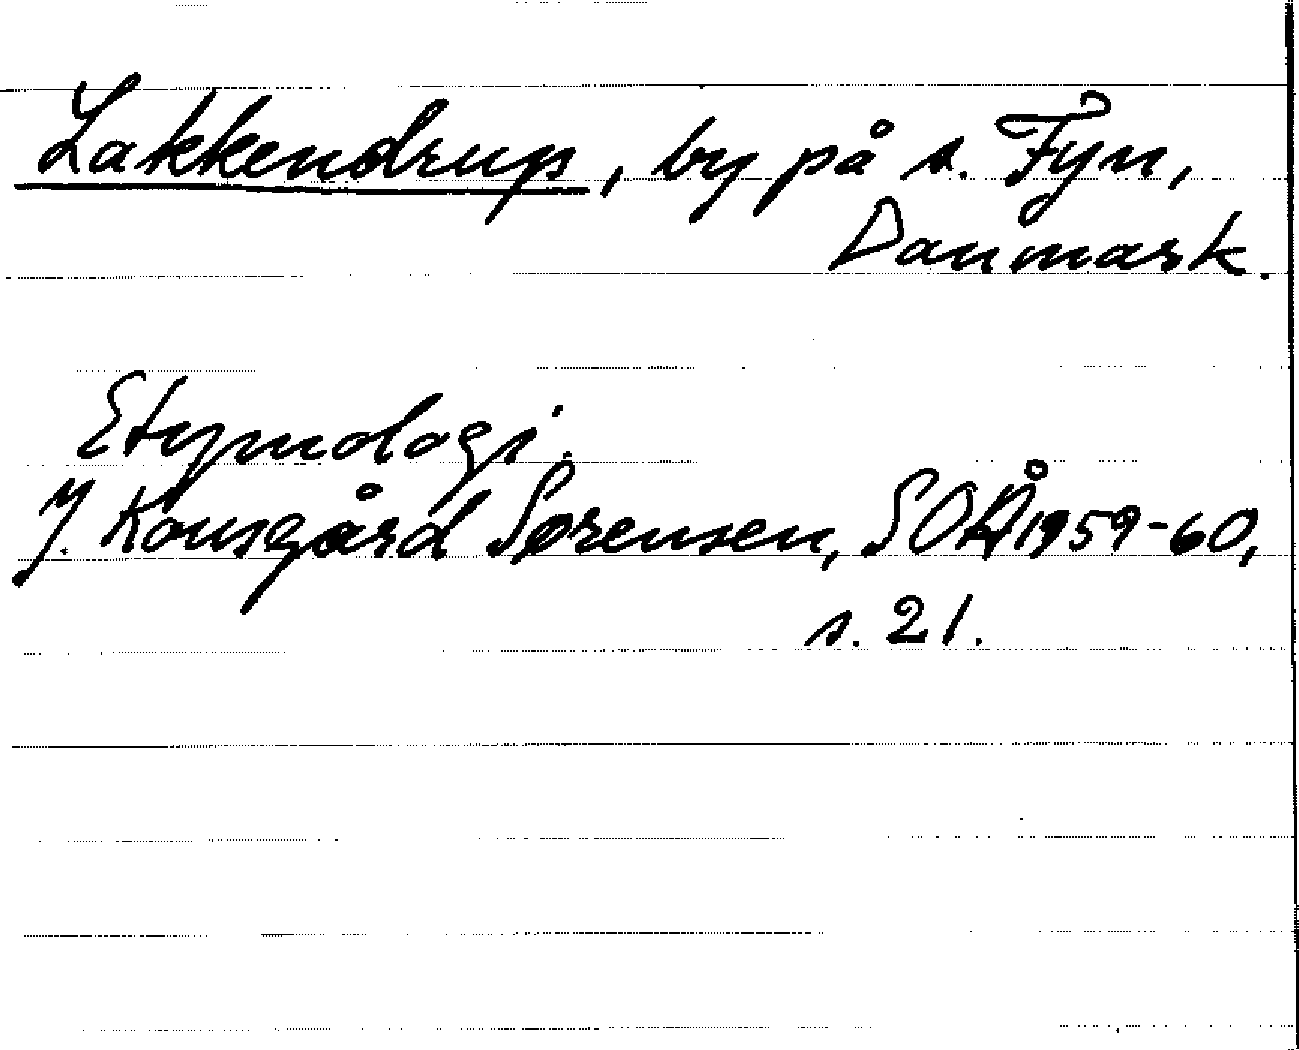 Lakkendrup, by på s. Fyn,
Danmark.
Etymologi.
J. Kousgård Sørensen, SOÅ 1959-60,
s. 21.